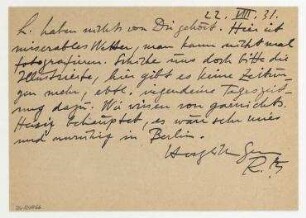 22. VIII. 31.
L. haben nichts von Dir gehört. Hier ist
miserables Wetter, man kann nicht mal
fotografieren. Schicke uns doch bitte die
Illustrierte, hier gibt es keine Zeitun-
gen mehr, evtl. irgendeine Tageszei-
tung dazu. Wir wissen von garnichts.
behauptet, es wäre sehr mies
und unruhig in Berlin.
R.